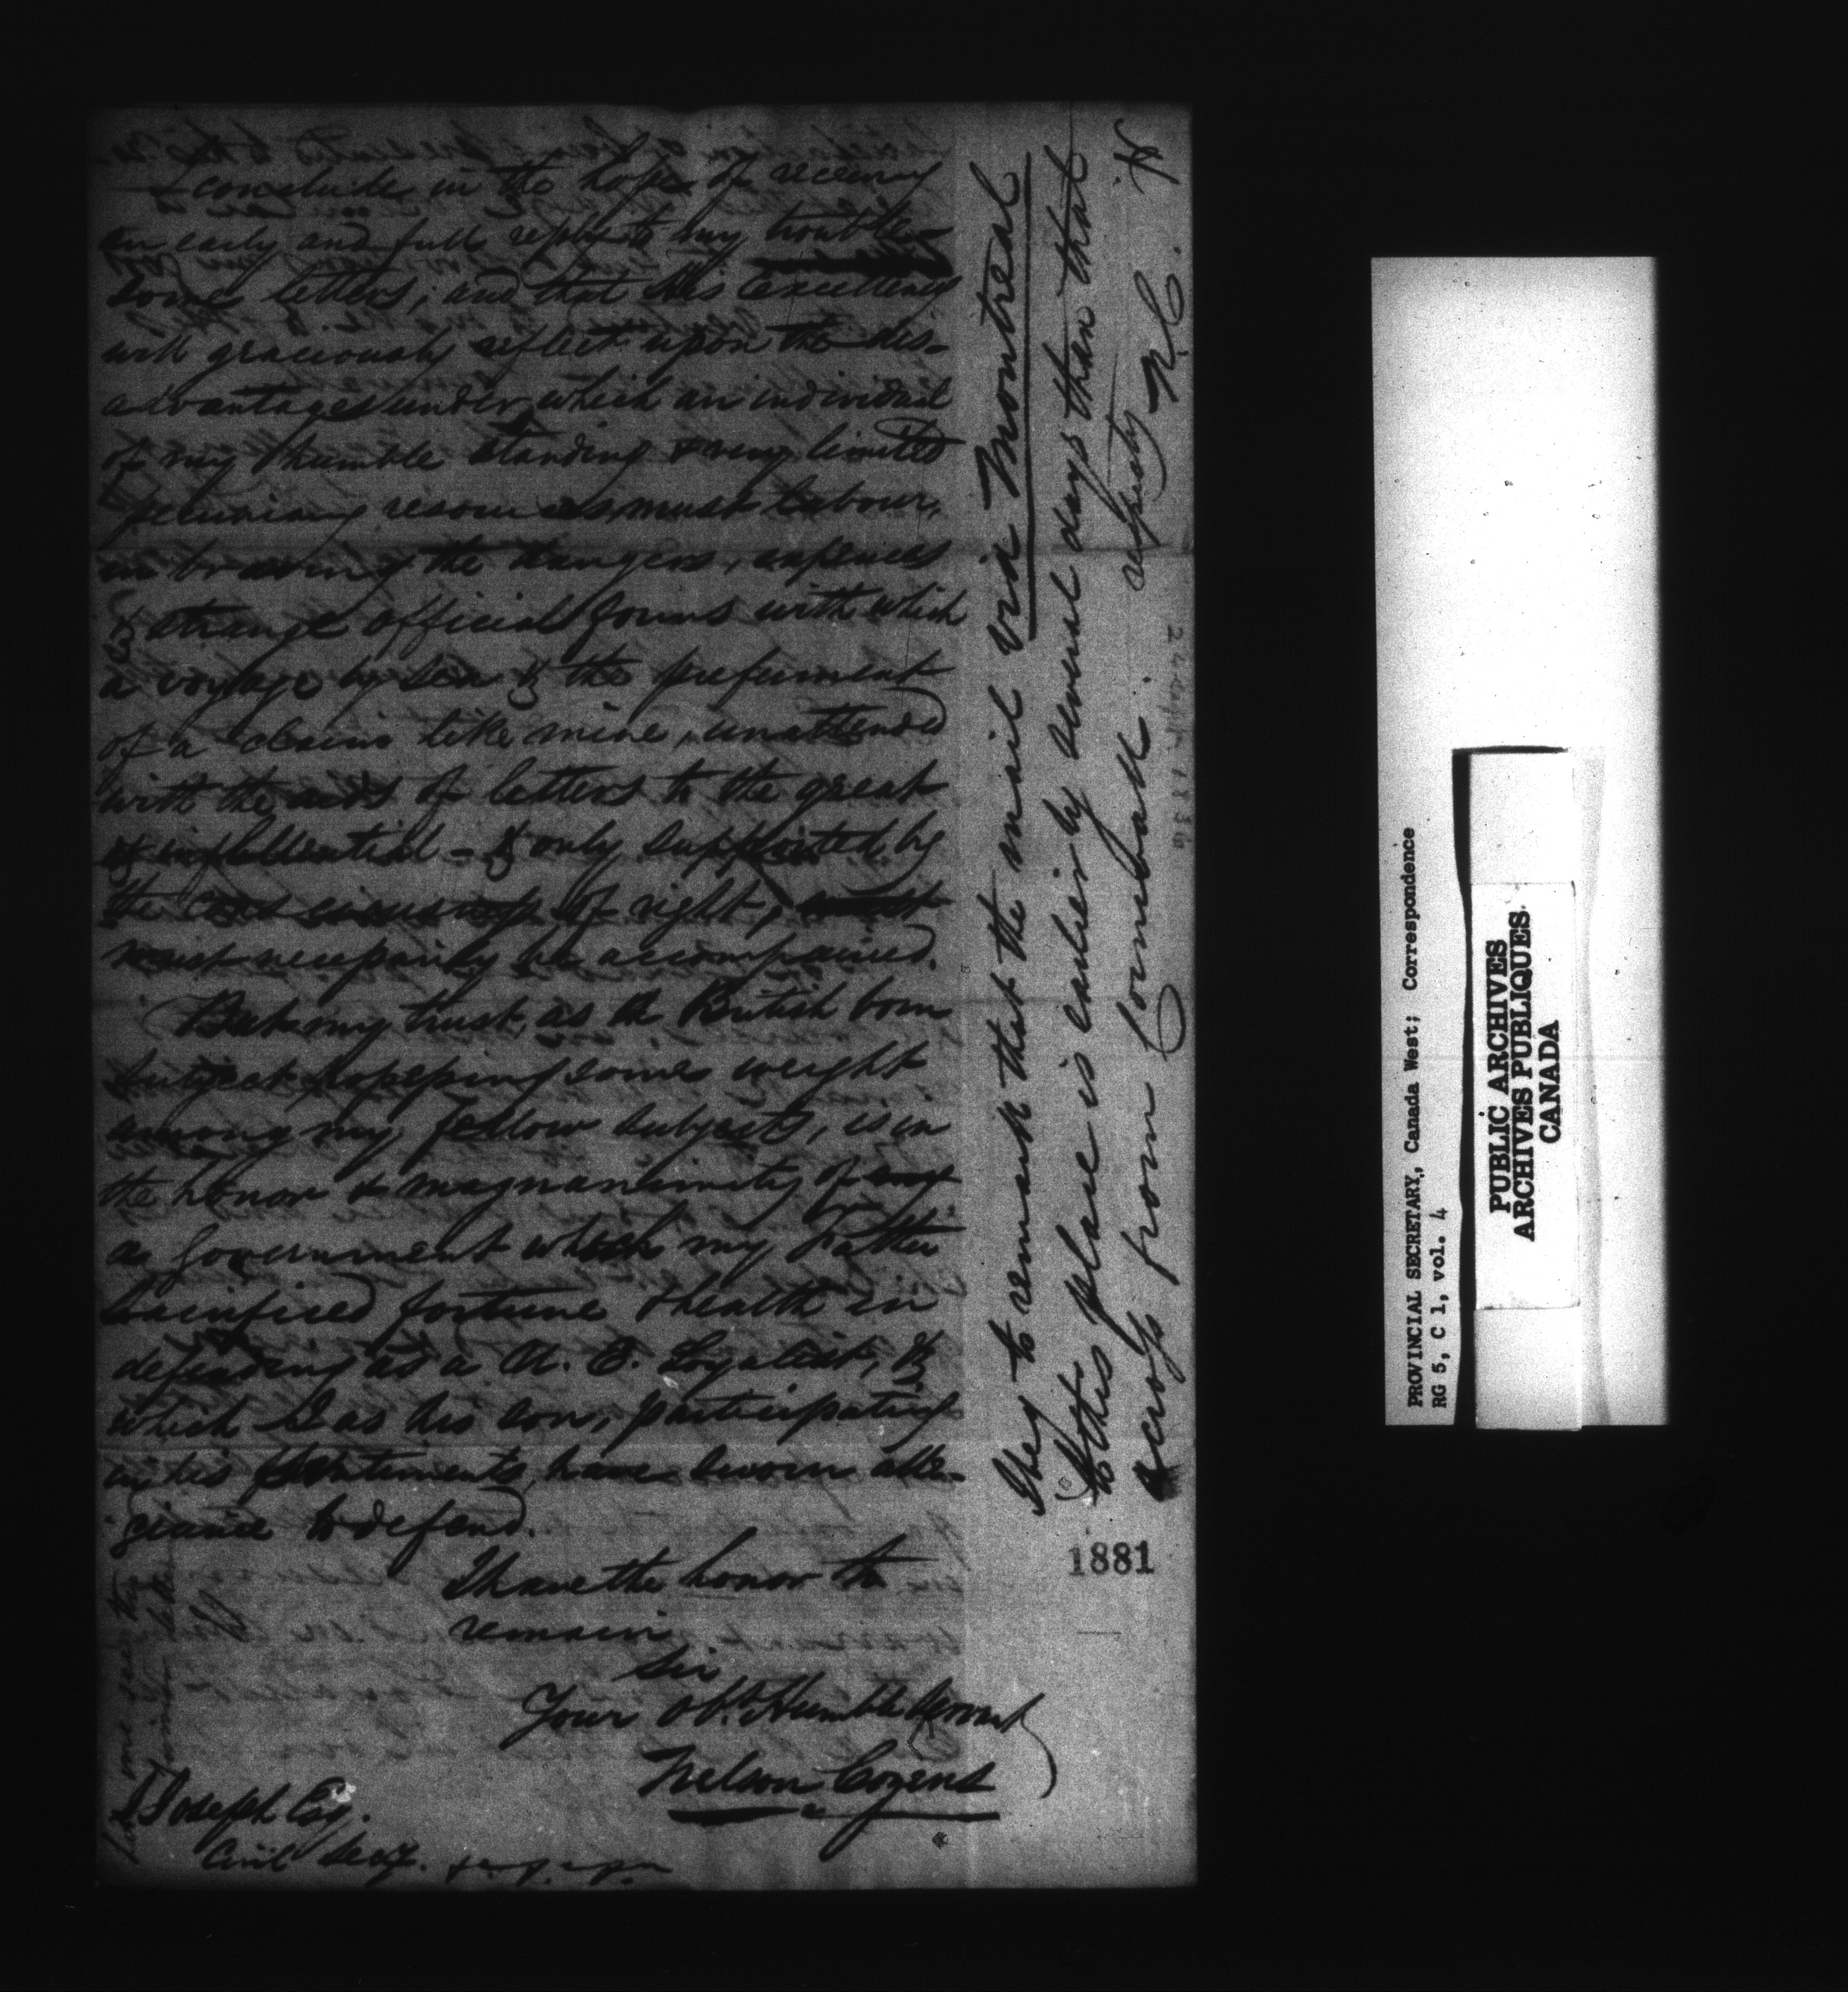 I conclude in the hope of receiving
an early and full reply to my trouble-
some letters; and that His Excellency
will graciously reflect upon the dis-
advantages under which an individual
of my humble standing & very limited
pecuniary resources must labour,
in braving the dangers, expences
& strange official forms with which
a voyage by sea & the preferment
of a claim like mine, unattended
with the aids of letters to the great
& influential - & only supported by
the consciousness of right,
must necessarily be accompanied.
But my trust, as a British born
subject possessing some weight
among my fellow subjects, is in
the honor & magnanimity of
a Government which my Father
sacrificed fortune & health in
defending as a U. E. Loyalist, &
which I as his son, participating
in his sentiments, have sworn alle-
giance to defend.
I have the honor to
remain
Sir
Your Obt. Humble Servant
Nelson Cozens
J Joseph Esq.
Civil Secy.
I beg to remark that the mail via Montreal
to this place is earlier by several days than that
across from Cornwall. respectfy N.C.
22 Sept 1836
1881
PROVINCIAL SECRETARY, Canada West; Correspondence
RG 5, C 1, vol. 4
PUBLIC ARCHIVES
ARCHIVES PUBLIQUES
CANADA